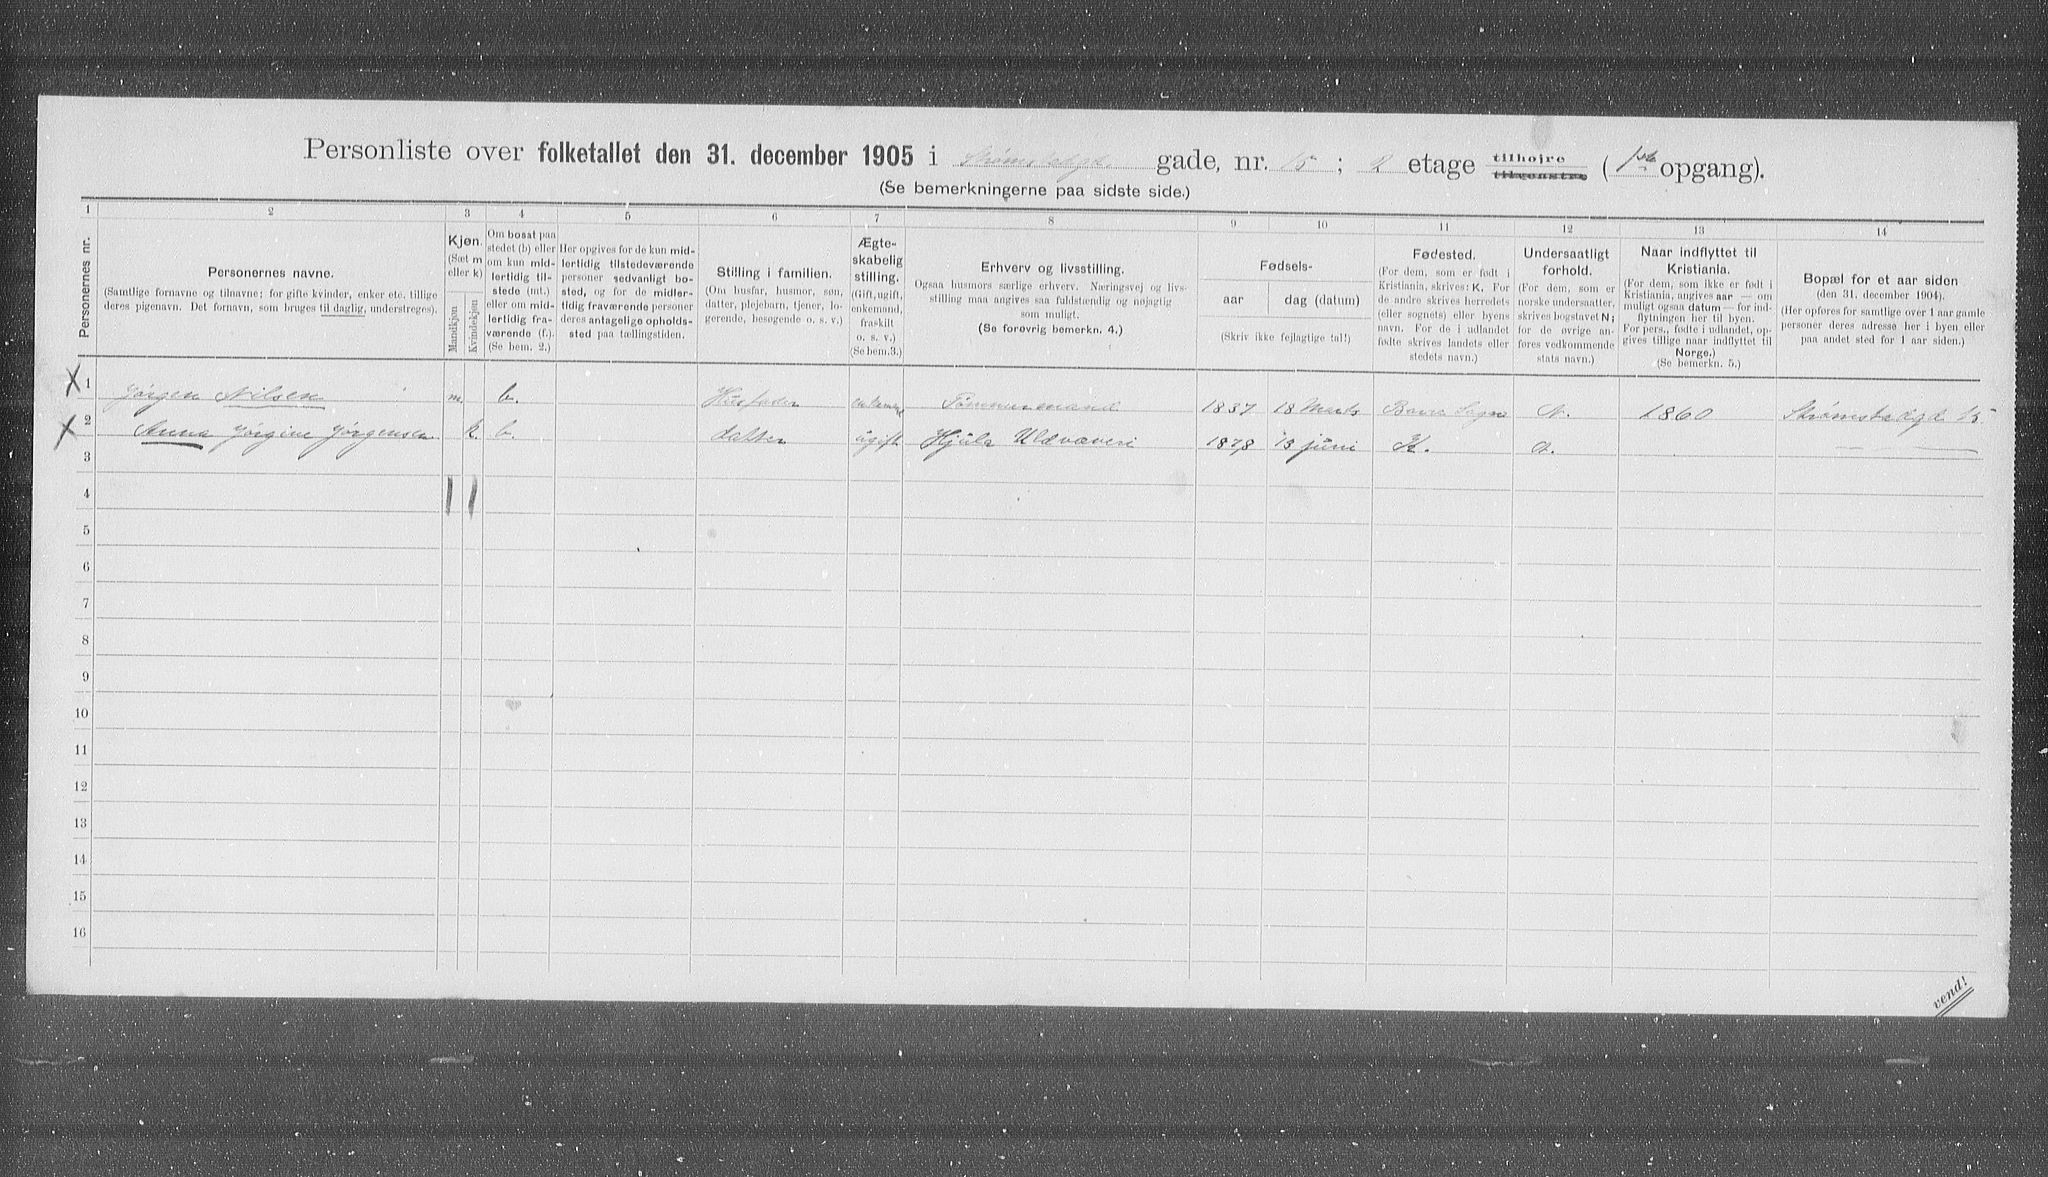 Personliste over folketallet den 31. december 1905 i Strømstadgd. gade, nr. 15 ; 2 etage tilhøjre tilvenstre (1ste opgang).
(Se bemerkningerne paa sidste side.)
1 2 3 4 5 6 7 8 9 10 11 12 13 14
Personernes nr.
Personernes navne.
(Samtlige fornavne og tilnavne; for gifte kvinder, enker etc. tillige
deres pigenavn. Det fornavn, som bruges til daglig, understreges).
Kjøn.
(Sæt m
eller k)
Mandkjøn
Kvindekjøn
Om bosat paa
stedet (b) eller
om kun mid-
lertidig til-
stede (mt.)
eller om mid-
lertidig fra-
værende (f.).
(Se bem. 2.)
Her opgives for de kun mid-
lertidig tilstedeværende
personer sedvanligt bo-
sted, og for de midler-
tidig fraværende personer
deres antagelige opholds-
sted paa tællingstiden.
Stilling i familien.
(Om husfar, husmor, søn,
datter, plejebarn, tjener, lo-
gerende, besøgende o. s. v.)
Ægte-
skabelig
stilling.
(Gift, ugift,
enkemand,
fraskilt
o. s. v.)
(Se bem.3.)
Erhverv og livsstilling.
Ogsaa husmors særlige erhverv. Næringsvej og livs-
stilling maa angives saa fuldstændig og nøjagtig
som muligt.
(Se forøvrig bemerkn. 4.)
Fødsels-
aar
dag (datum)
(Skriv ikke fejlagtige tal!)
Fødested.
(For dem, som er født i
Kristiania, skrives: K. For
de andre skrives herredets
(eller sognets) eller byens
navn. For de i udlandet
fødte skrives landets eller
stedets navn.)
Undersaatligt
forhold.
(For dem, som er
norske undersaatter,
skrives bogstavet N;
for de øvrige an-
føres vedkommende
stats navn.)
Naar indflyttet til
Kristiania.
(For dem, som ikke er født i
Kristiania, angives aar — om
muligt ogsaa datum — for ind-
flytningen her til byen.
For pers., fødte i udlandet, op-
gives tillige naar indflyttet til
Norge.)
(Se bemerkn. 5.)
Bopæl for et aar siden
(den 31. december 1904).
(Her opføres for samtlige over 1 aar gamle
personer deres adresse her i byen eller
paa andet sted for 1 aar siden.)
X 1 Jørgen Nilsen m. b. Husfader enkemd Tømmermand 1837 18 Marts N. 1860 Strømstadgd 15
X 2 Anna Jørgine Jørgensen k. b. datter ugift Hjula Uldvæveri 1878 13 juni K. N. — " —
3
4
5
6
7
8
9
10
11
12
13
14
15
16
vend!